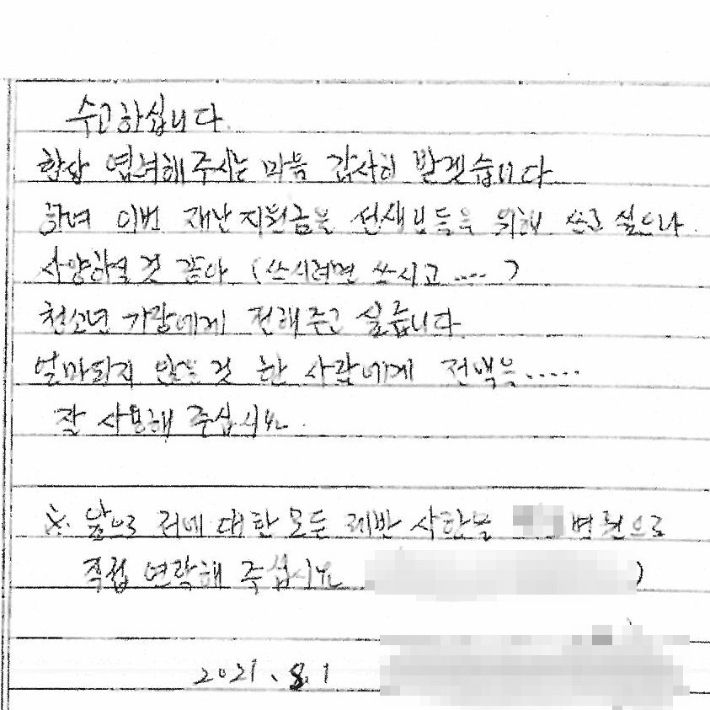 수고하십니다.
항상 염려해주시는 마음 감사히 받겠습니다
하여 이번 재난지원금을 선생님들을 위해 쓰고 싶으나
사양하실 것 같아 (쓰시려면 쓰시고 ....)
청소년 가장에게 전해주고 싶습니다.
얼마되지 않는 것 한 사람에게 전액을.....
잘 사용해 주십시요.
※ 앞으로 저에 대한 모든 제반 사항을 병원으로
직접 연락해 주십시요 )
2021. 8. 1